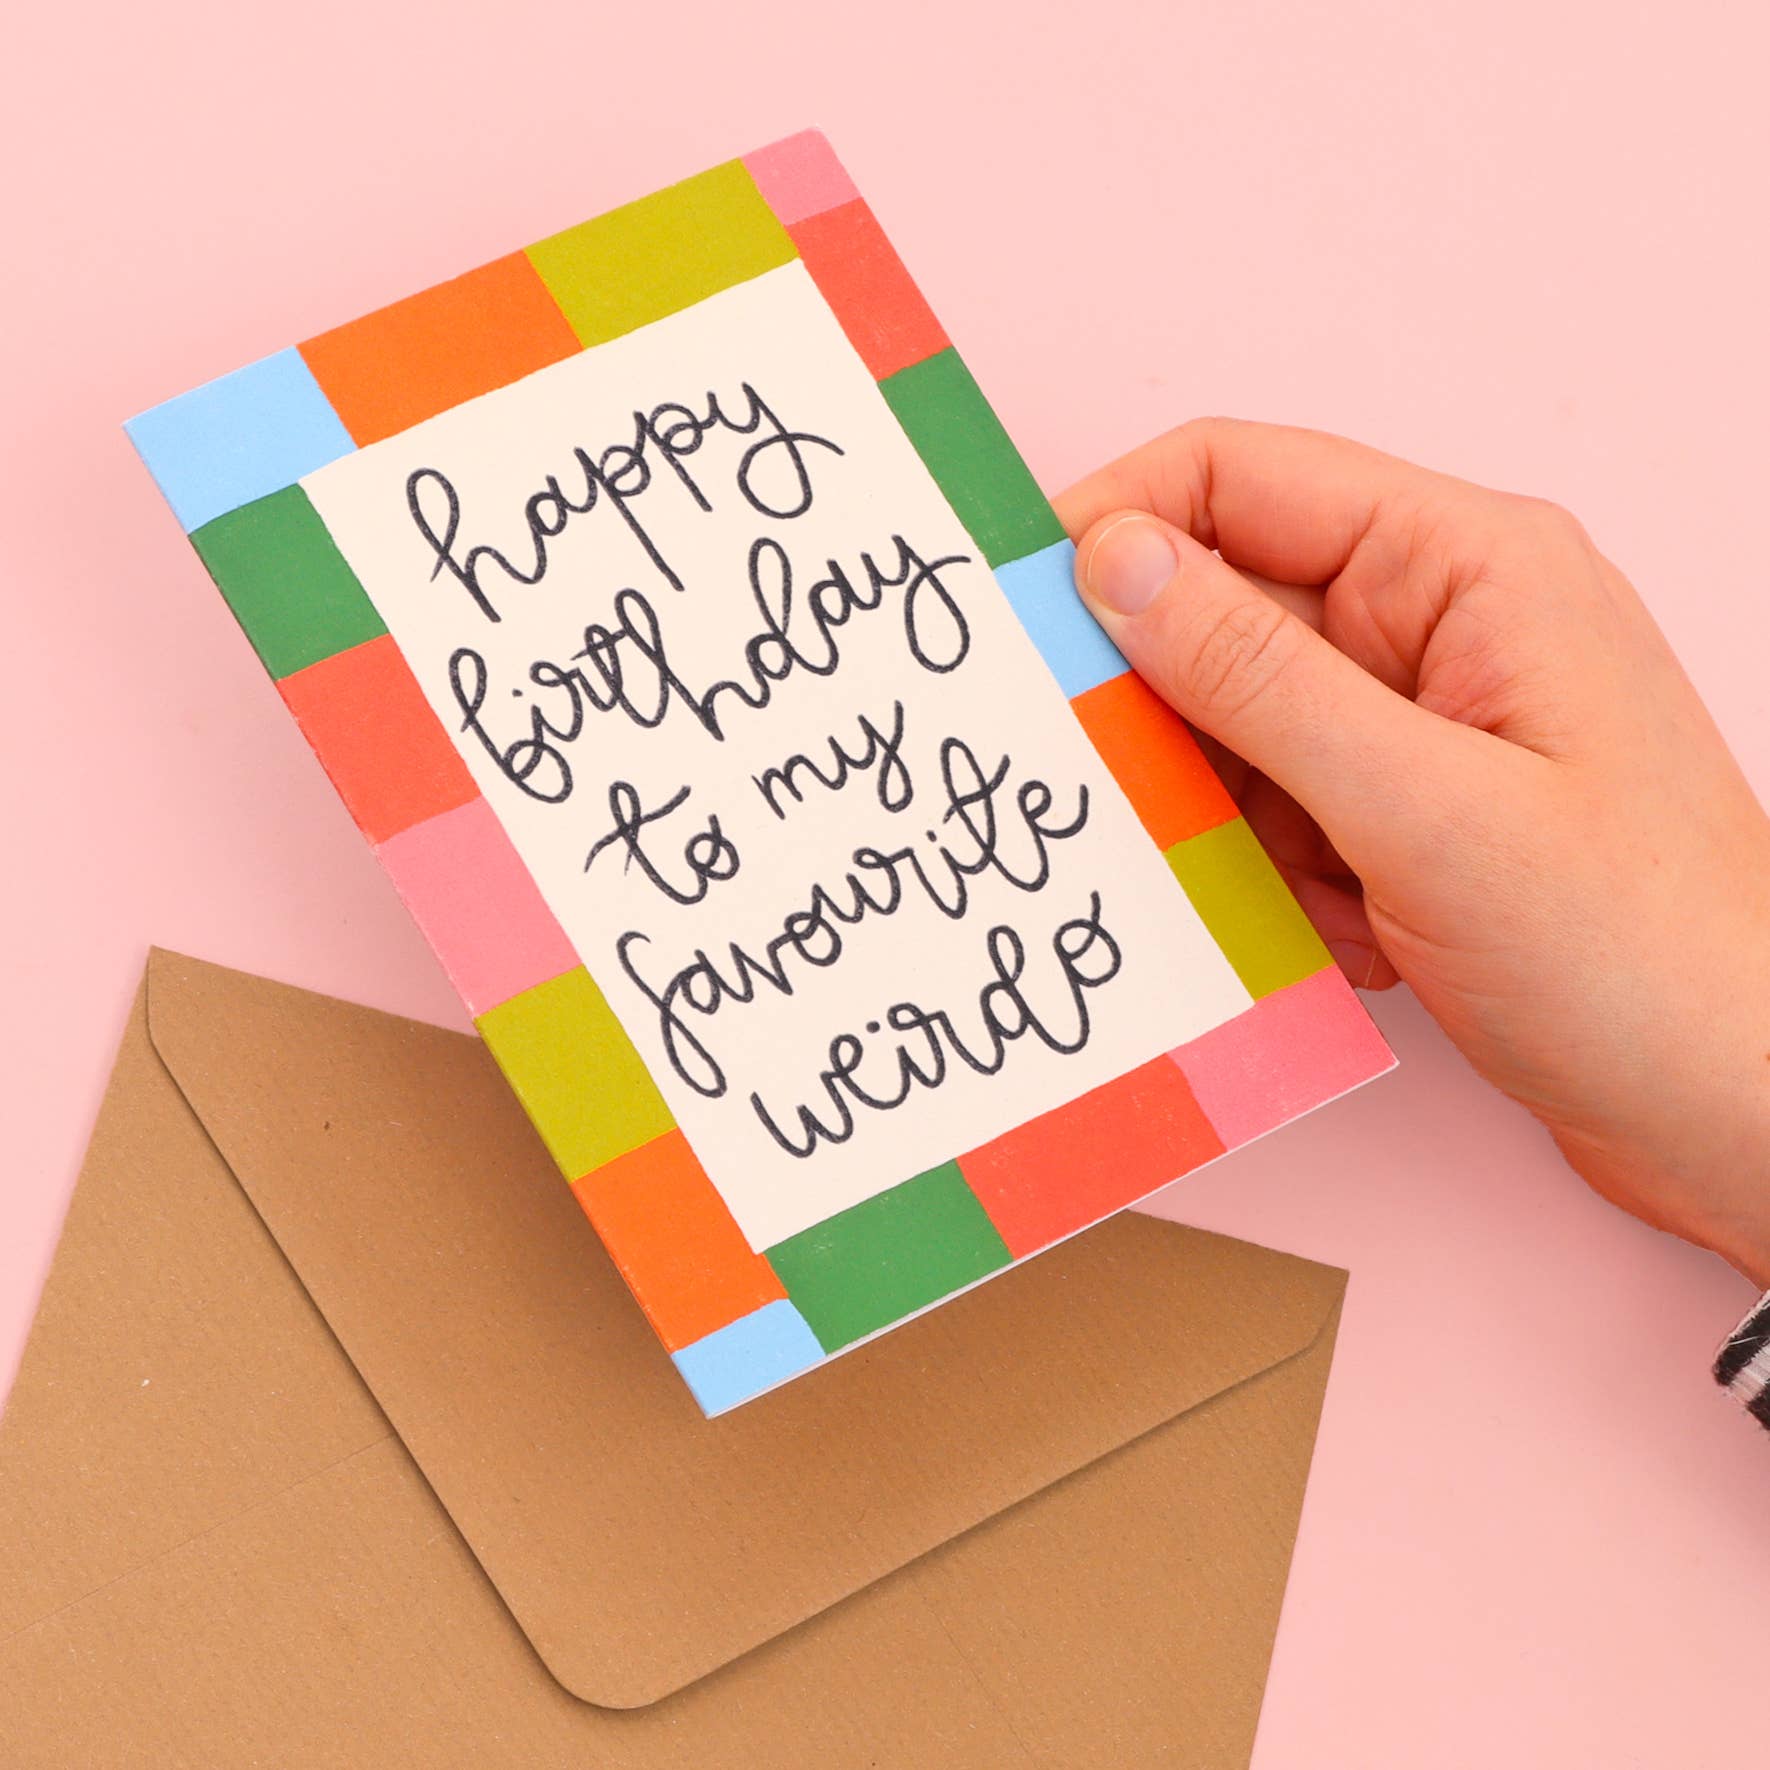 happy
birthday
to my
favourite
weirdo